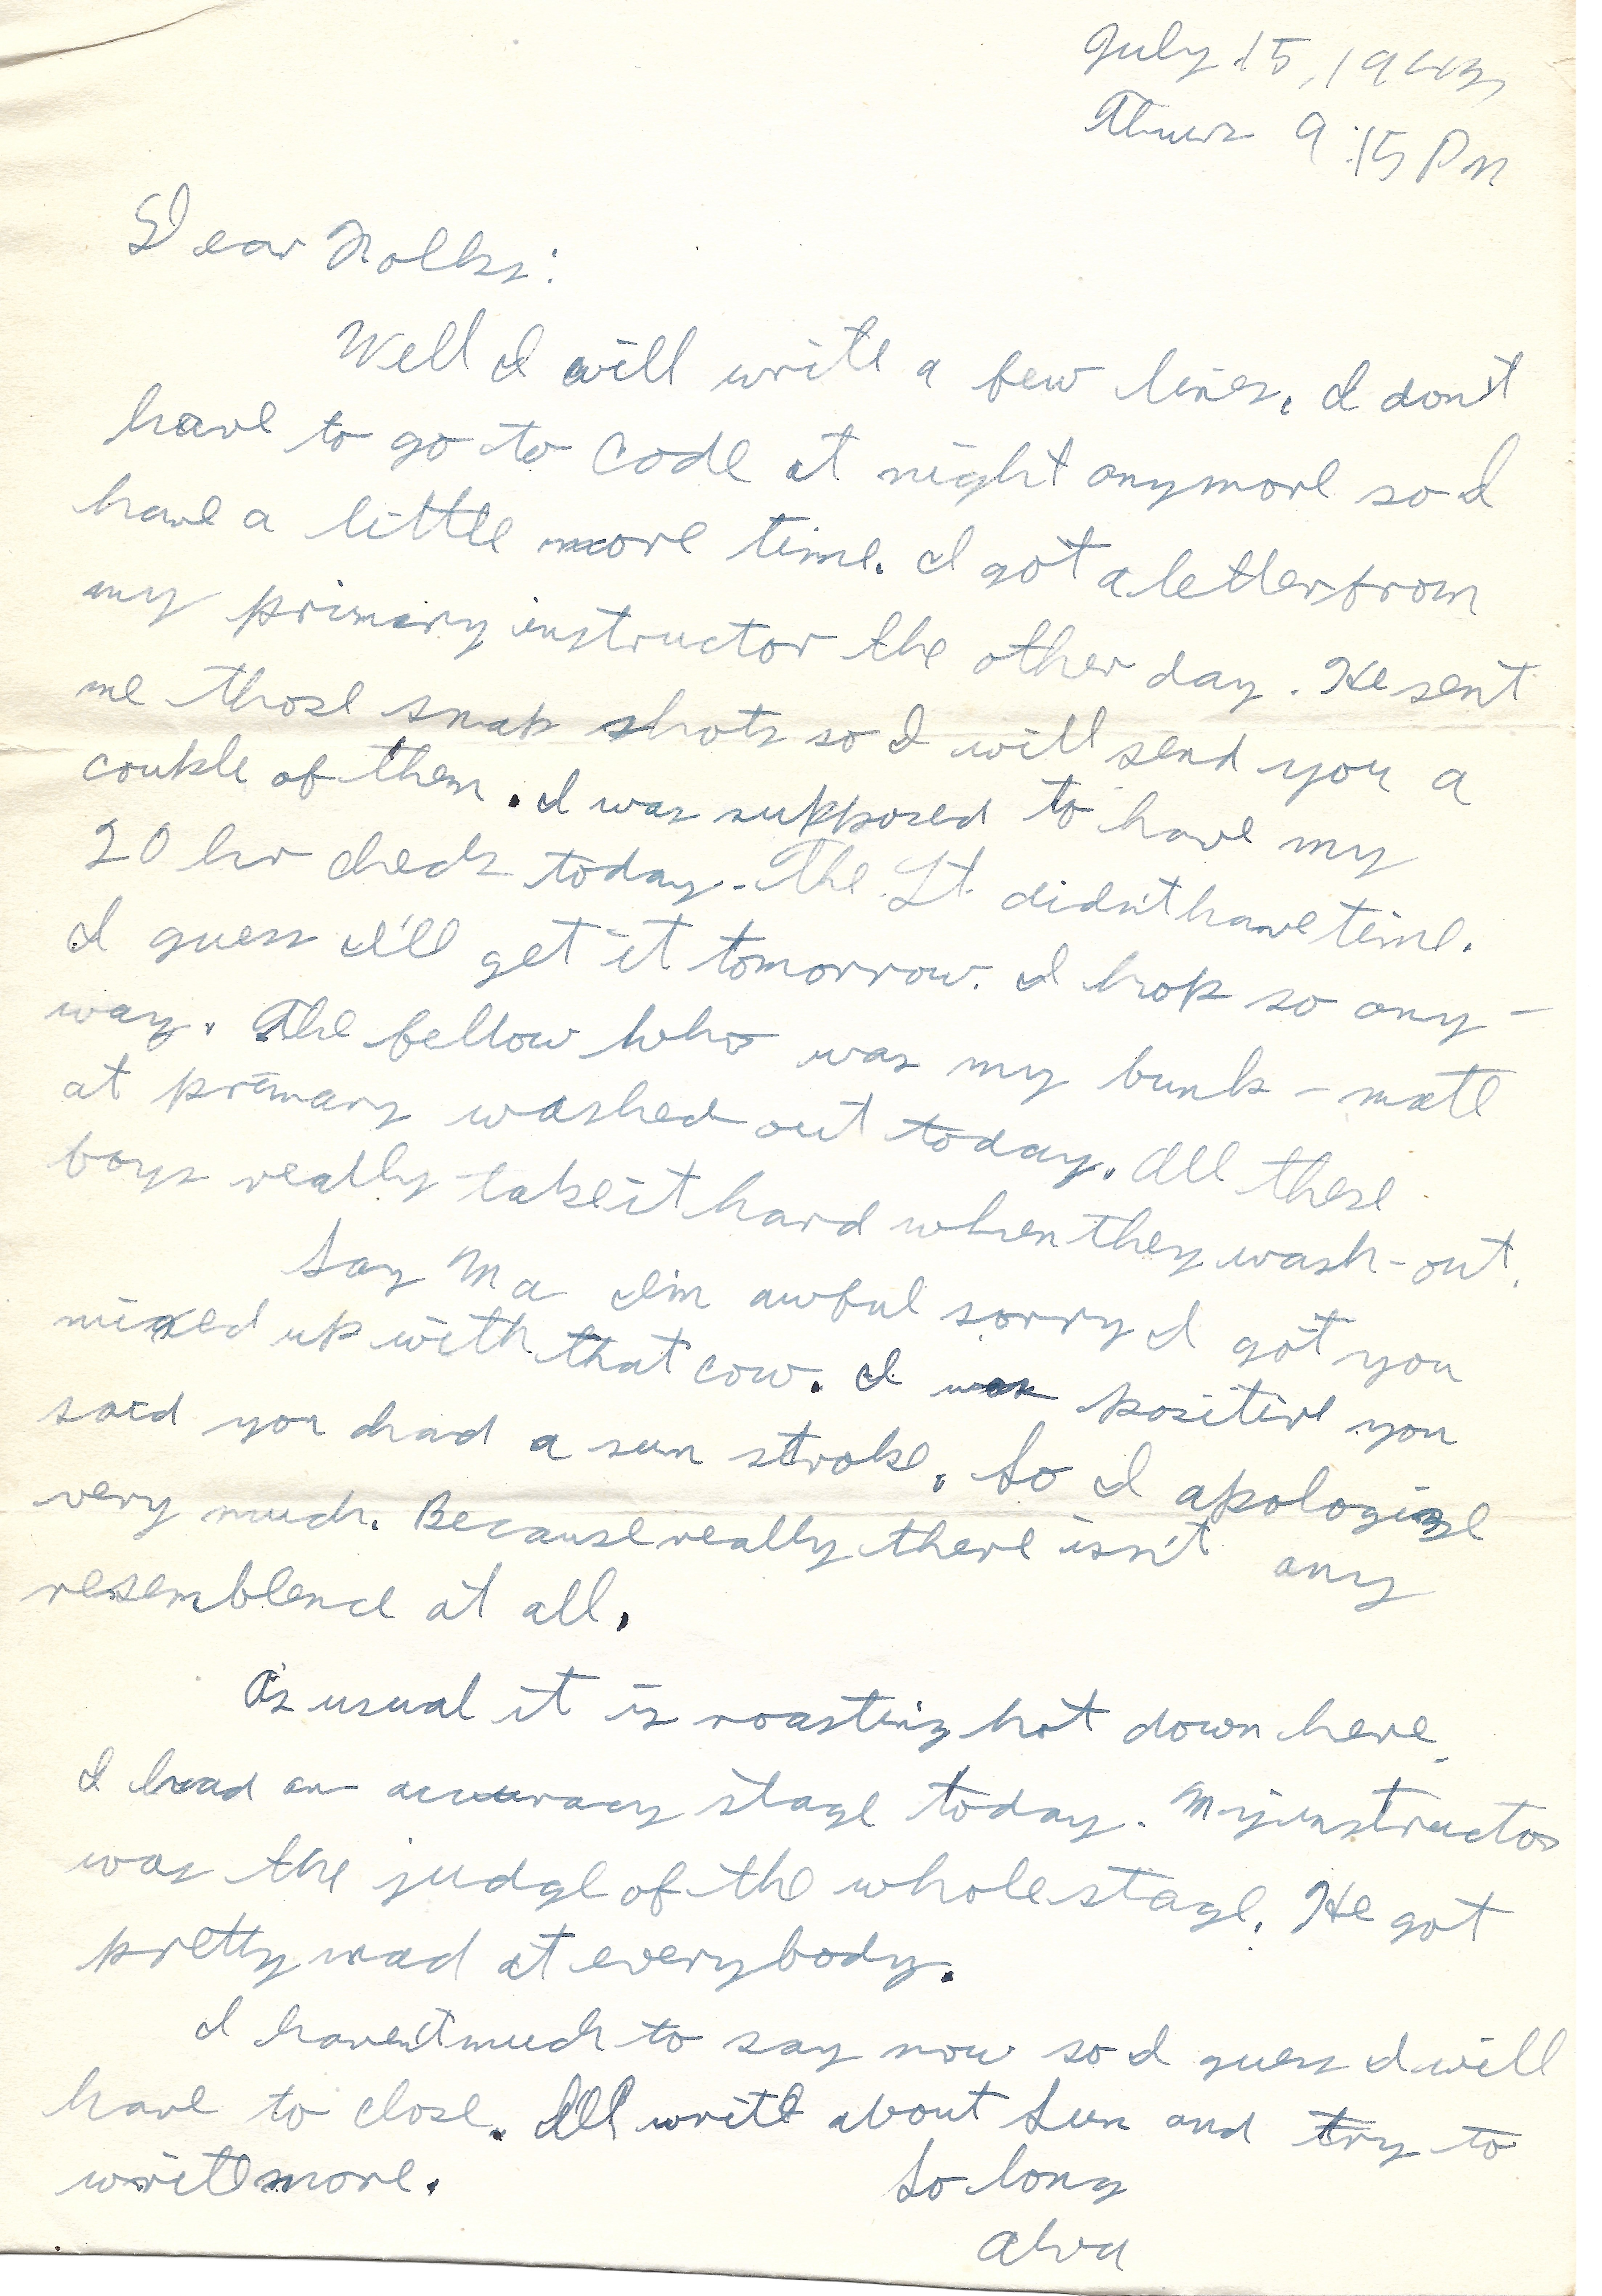 July 15, 1943
Thurs 9:15 Pm
Dear Folks:
Well I will write a few lines. I don't
have to go to code at night anymore so I
have a little more time. I got a letter from
my primary instructor the other day. He sent
me those snap shots so I will send you a
couple of them. I was supposed to have my
20 hr check today. The Lt. didn't have time.
I guess I'll get it tomorrow. I hope so any-
way. The fellow who was my bunk-mate
at primary washed out today. All these
boys really take it hard when they wash-out.
Say Ma I'm awful sorry I got you
mixed up with that cow. I was positive you
said you had a sun stroke. So I apologize
very much. Because really there isn't any
resemblence at all.
As usual it is roasting hot down here.
I had an accuracy stage today. My instructor
was the judge of the whole stage. He got
pretty mad at everybody.
I haven't much to say now so I guess I will
have to close. I'll write about Sun and try to
write more.
So long
Alva